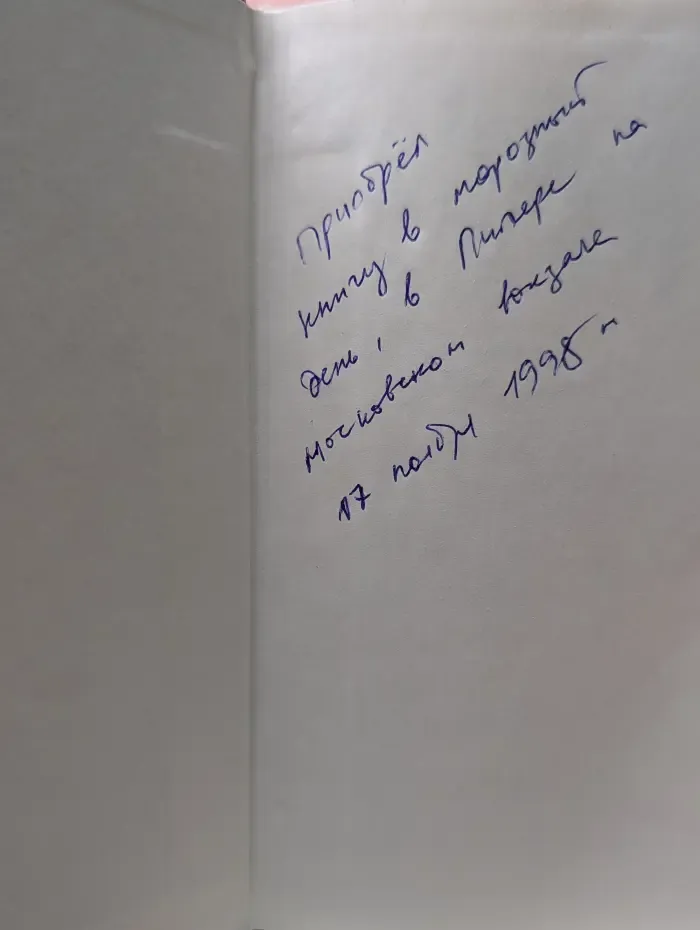 Приобрёл
книгу в морозный
день, в Питере на
московском вокзале
17 ноября 1998 г